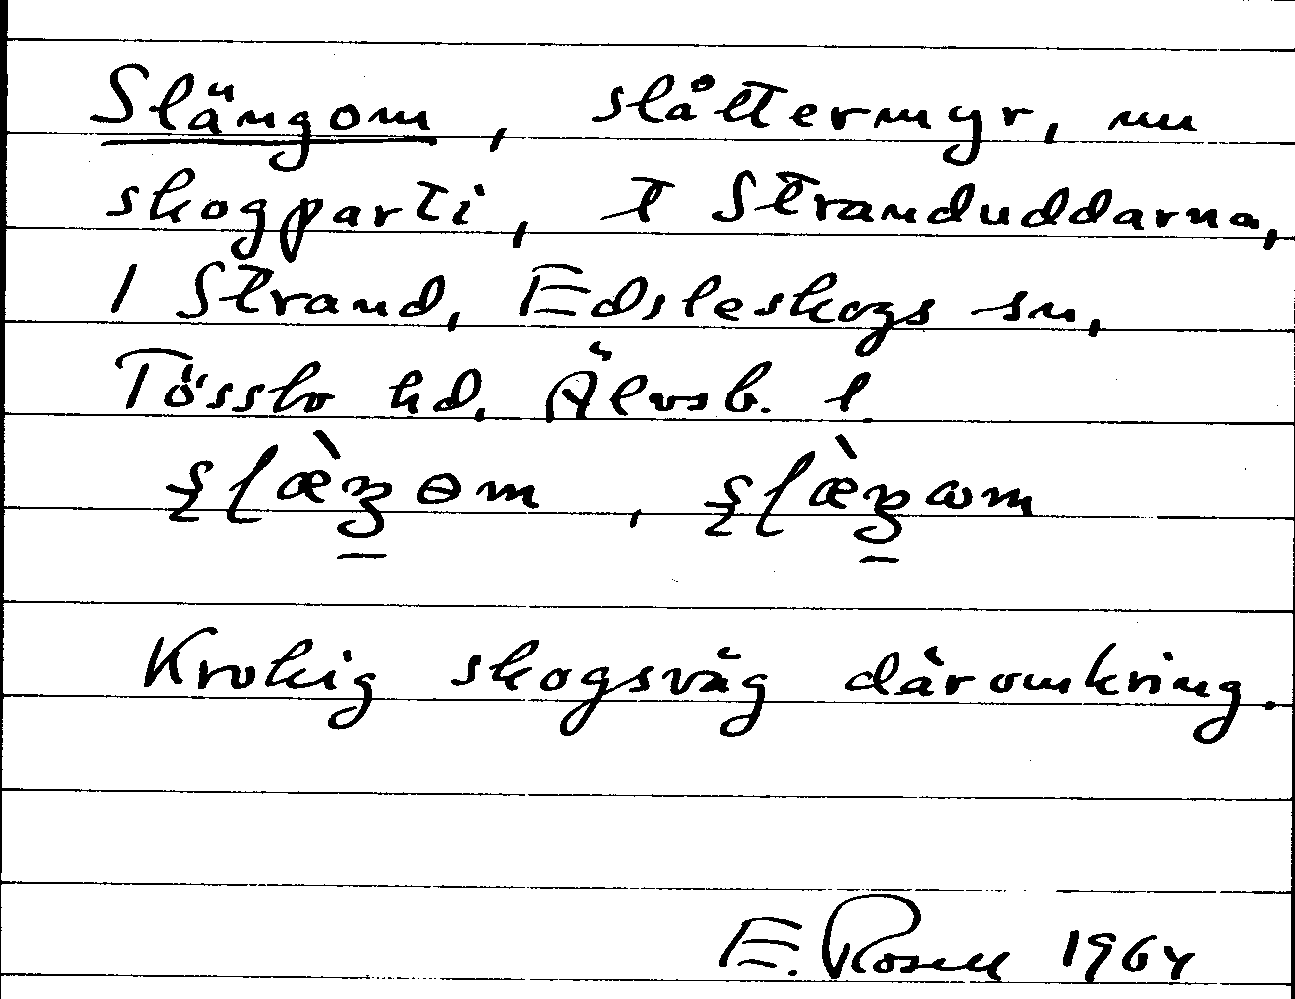 Slängom, slåttermyr, nu
skogparti, t Stranduddarna,
1 Strand, Edsleskogs sn,
Tössbo hd, Älvsb. l.
Krokig skogsväg däromkring.
E. Rosell 1964